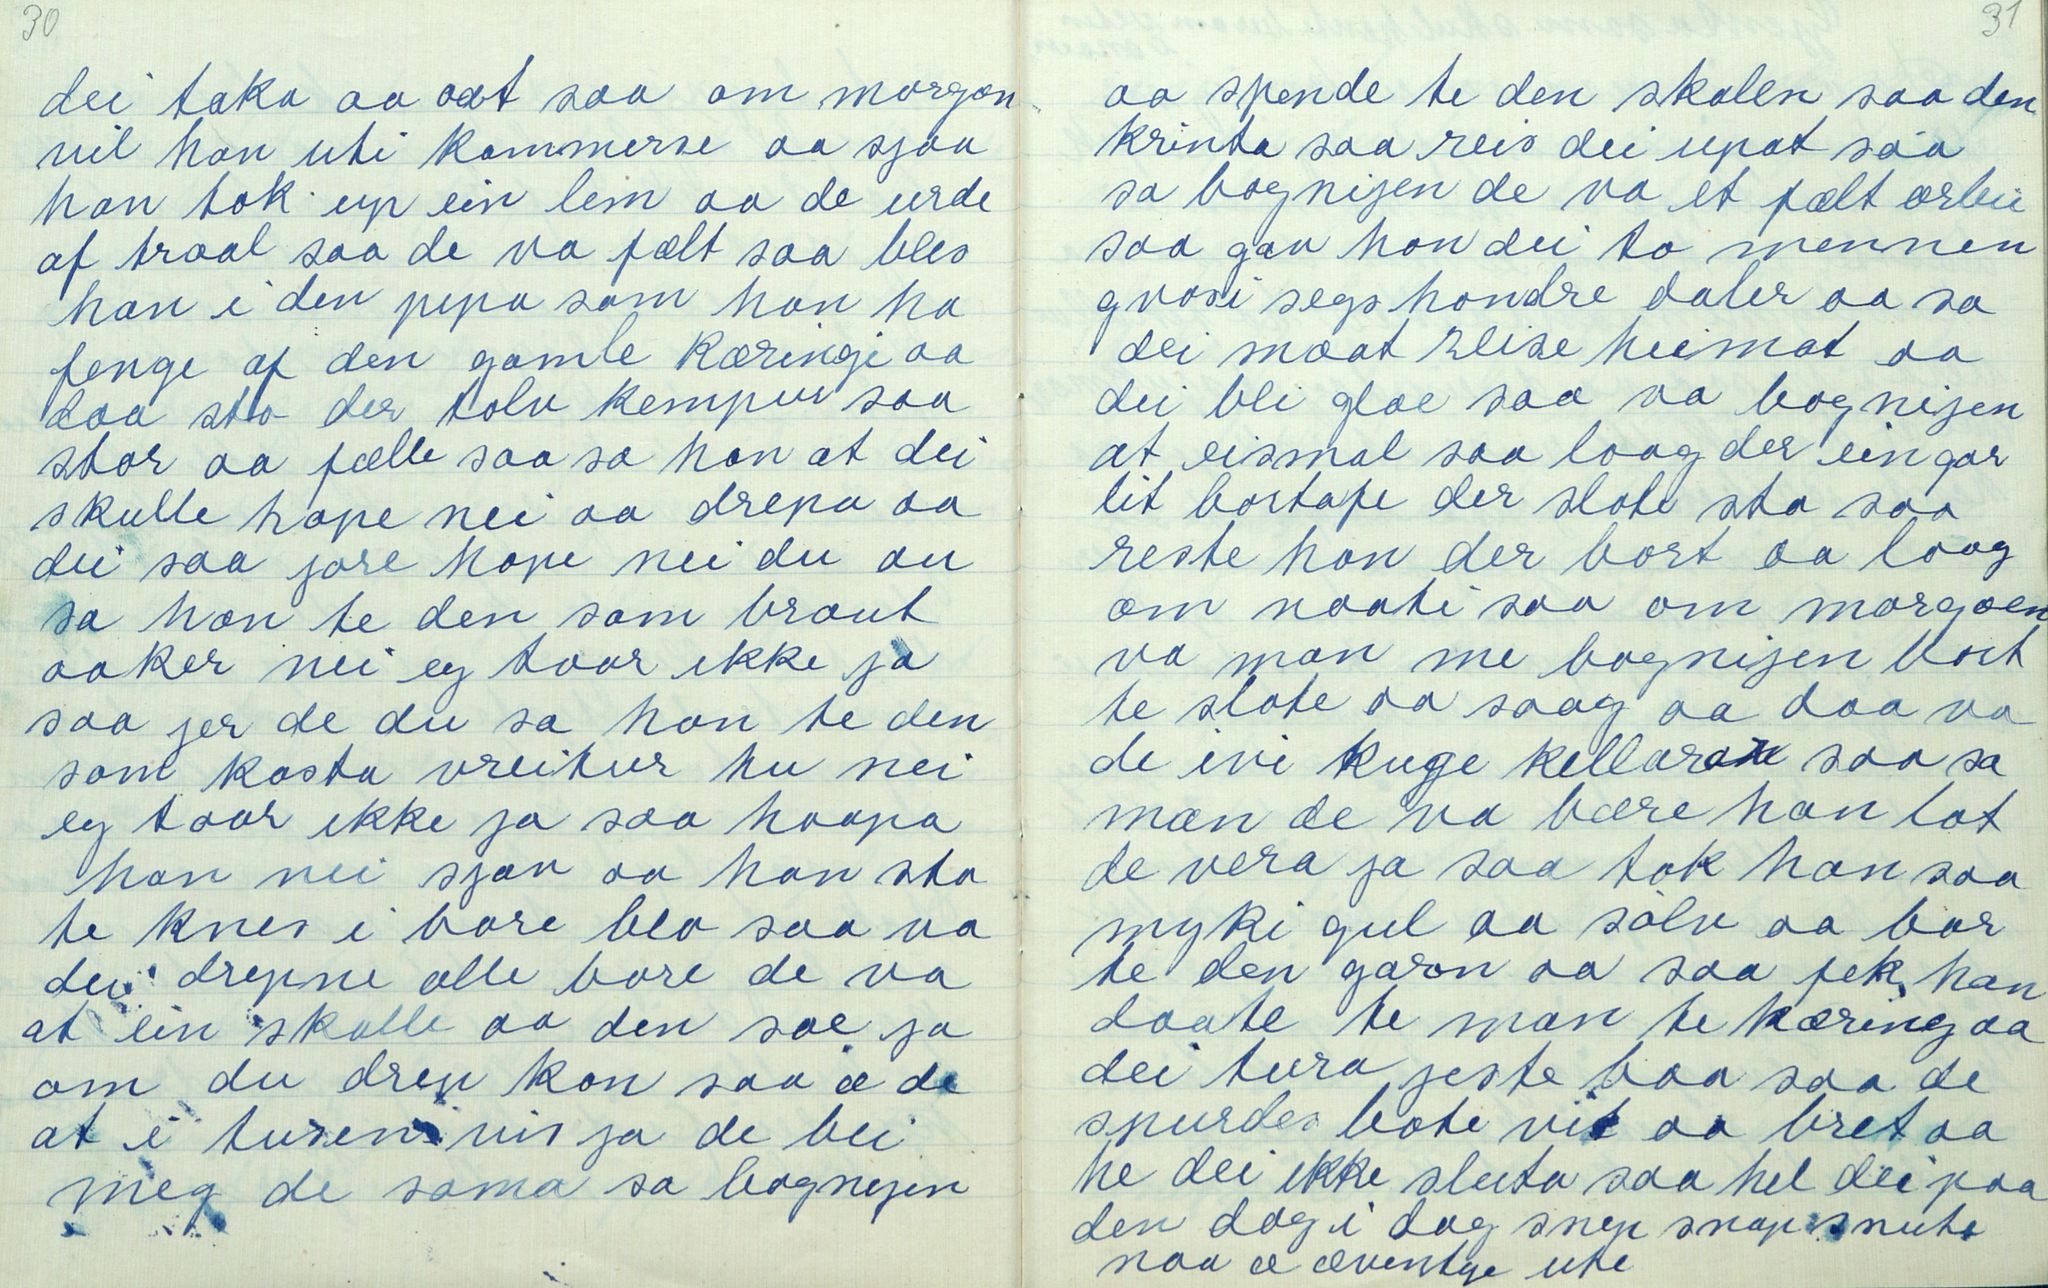 30
dei taka aa aat saa om morgon
vil han uti kammerse aa sjaa
han tok up ein lem aa de urde
af traal saa de va fælt saa bles
han i den pipa som han ha
fenge af den gamle kæringi aa
daa sto der tolv kempur saa
stor aa fælle saa sa han at dei
skulle hope nei aa drepa aa
dei saa jore hope nei du au
sa han te den som braut
aaker nei eg toor ikke ja
saa jer de du sa han te den
som kasta vreitur hu nei
eg toor ikke ja saa haapa
han nei sjav aa han sto
te knes i bare blo saa va
dei drepne alle bare de va
at ein skalle aa den sae ja
om du drep kon saa æ de
at i tusenvis ja de bli
meg de sama sa bognijen
31
aa spende te den skalen saa den
krinta saa reis dei upat saa
sa bognijen de va et fælt ærbei
saa gav han dei to mennen
qvosi segs hondre daler aa sa
dei maat reise heimat aa
dei bli glae saa va bognijen
at eismal saa laag der ein gar
lit bortafe der slote sto saa
reste han der bort aa laag
om naati saa om morgoen
va man me bognijen bort
te slote aa saag aa daa va
de ivi kuge kellarane saa sa
man de va bære han lot
de vera ja saa tok han saa
myki gul aa sølv aa bar
te den garon aa saa fek han
daate te man te kæring aa
dei tura jeste baa saa de
spurdes bote vit aa bret aa
he dei ikke sluta saa hel dei paa
den dag i dag snep snap snute
naa æ æventye ute